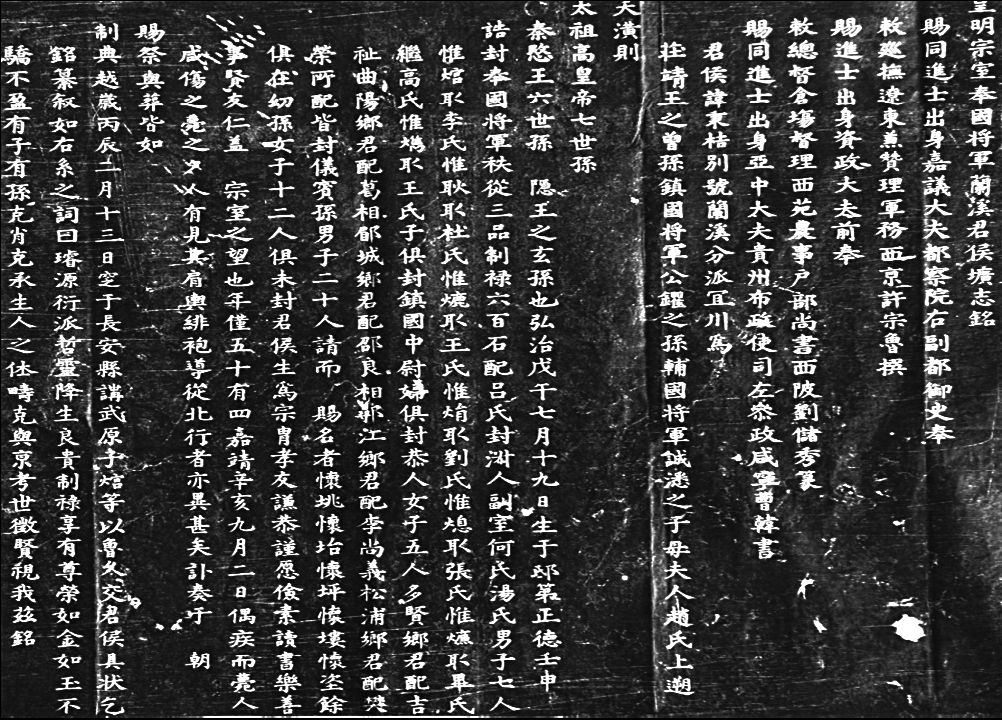 皇明宗室奉國將軍蘭溪君侯壙志銘
賜同進士出身嘉議大夫都察院右副都御史奉
敕巡撫遼東兼贊理軍務西京許宗魯撰
賜進士出身資政大夫前奉
敕總督倉場督理西苑農事戶部尚書西陂劉儲秀篆
賜同進士出身亞中大夫貴州布政使司左叅政咸寧曹韓書
君侯諱秉桔別號蘭溪分派宜川為
莊靖王之曾孫鎮國將軍公鏳之孫輔國將軍誠㴋之子母夫人趙氏上遡
天潢則
太祖高皇帝七世孫
秦愍王六世孫 隱王之玄孫也弘治戊午七月十九日生于邸第正德壬申
誥封奉國將軍秩從三品制祿六百石配呂氏封淑人副室何氏湯氏男子七人
惟焴耴李氏惟耿耴杜氏惟 耴王氏惟焇耴劉氏惟熜耴張氏惟 耴畢氏
繼高氏惟 耴王氏子俱封鎮國中尉婦俱封恭人女子五人多賢鄉君配吉
祉曲陽鄉君配葛相郁城鄉君配邵良相郫江鄉君配李尚義松浦鄉君配樊
榮所配皆封儀賓孫男子二十人請而 賜名者懷垗懷坮懷坪懷塿懷坖餘
俱在幼孫女子十二人俱未封君侯生為宗冑孝友謙恭謹愿儉素讀書樂善
事賢友仁蓋 宗室之望也年僅五十有四嘉靖辛亥九月二日偶疾而薨人
咸傷之薨之夕人有見其肩輿緋袍導從北行者亦異甚矣訃奏于 朝
賜祭與葬皆如
制典越歲丙辰二月十三日窆于長安縣講武原子焴等以魯久交君侯具狀乞
銘纂敘如右系之詞曰璿源衍派哲靈降生良貴制祿享有尊榮如金如玉不
驕不盈有子有孫克肖克承生人之休疇克與京考世徵賢視我茲銘